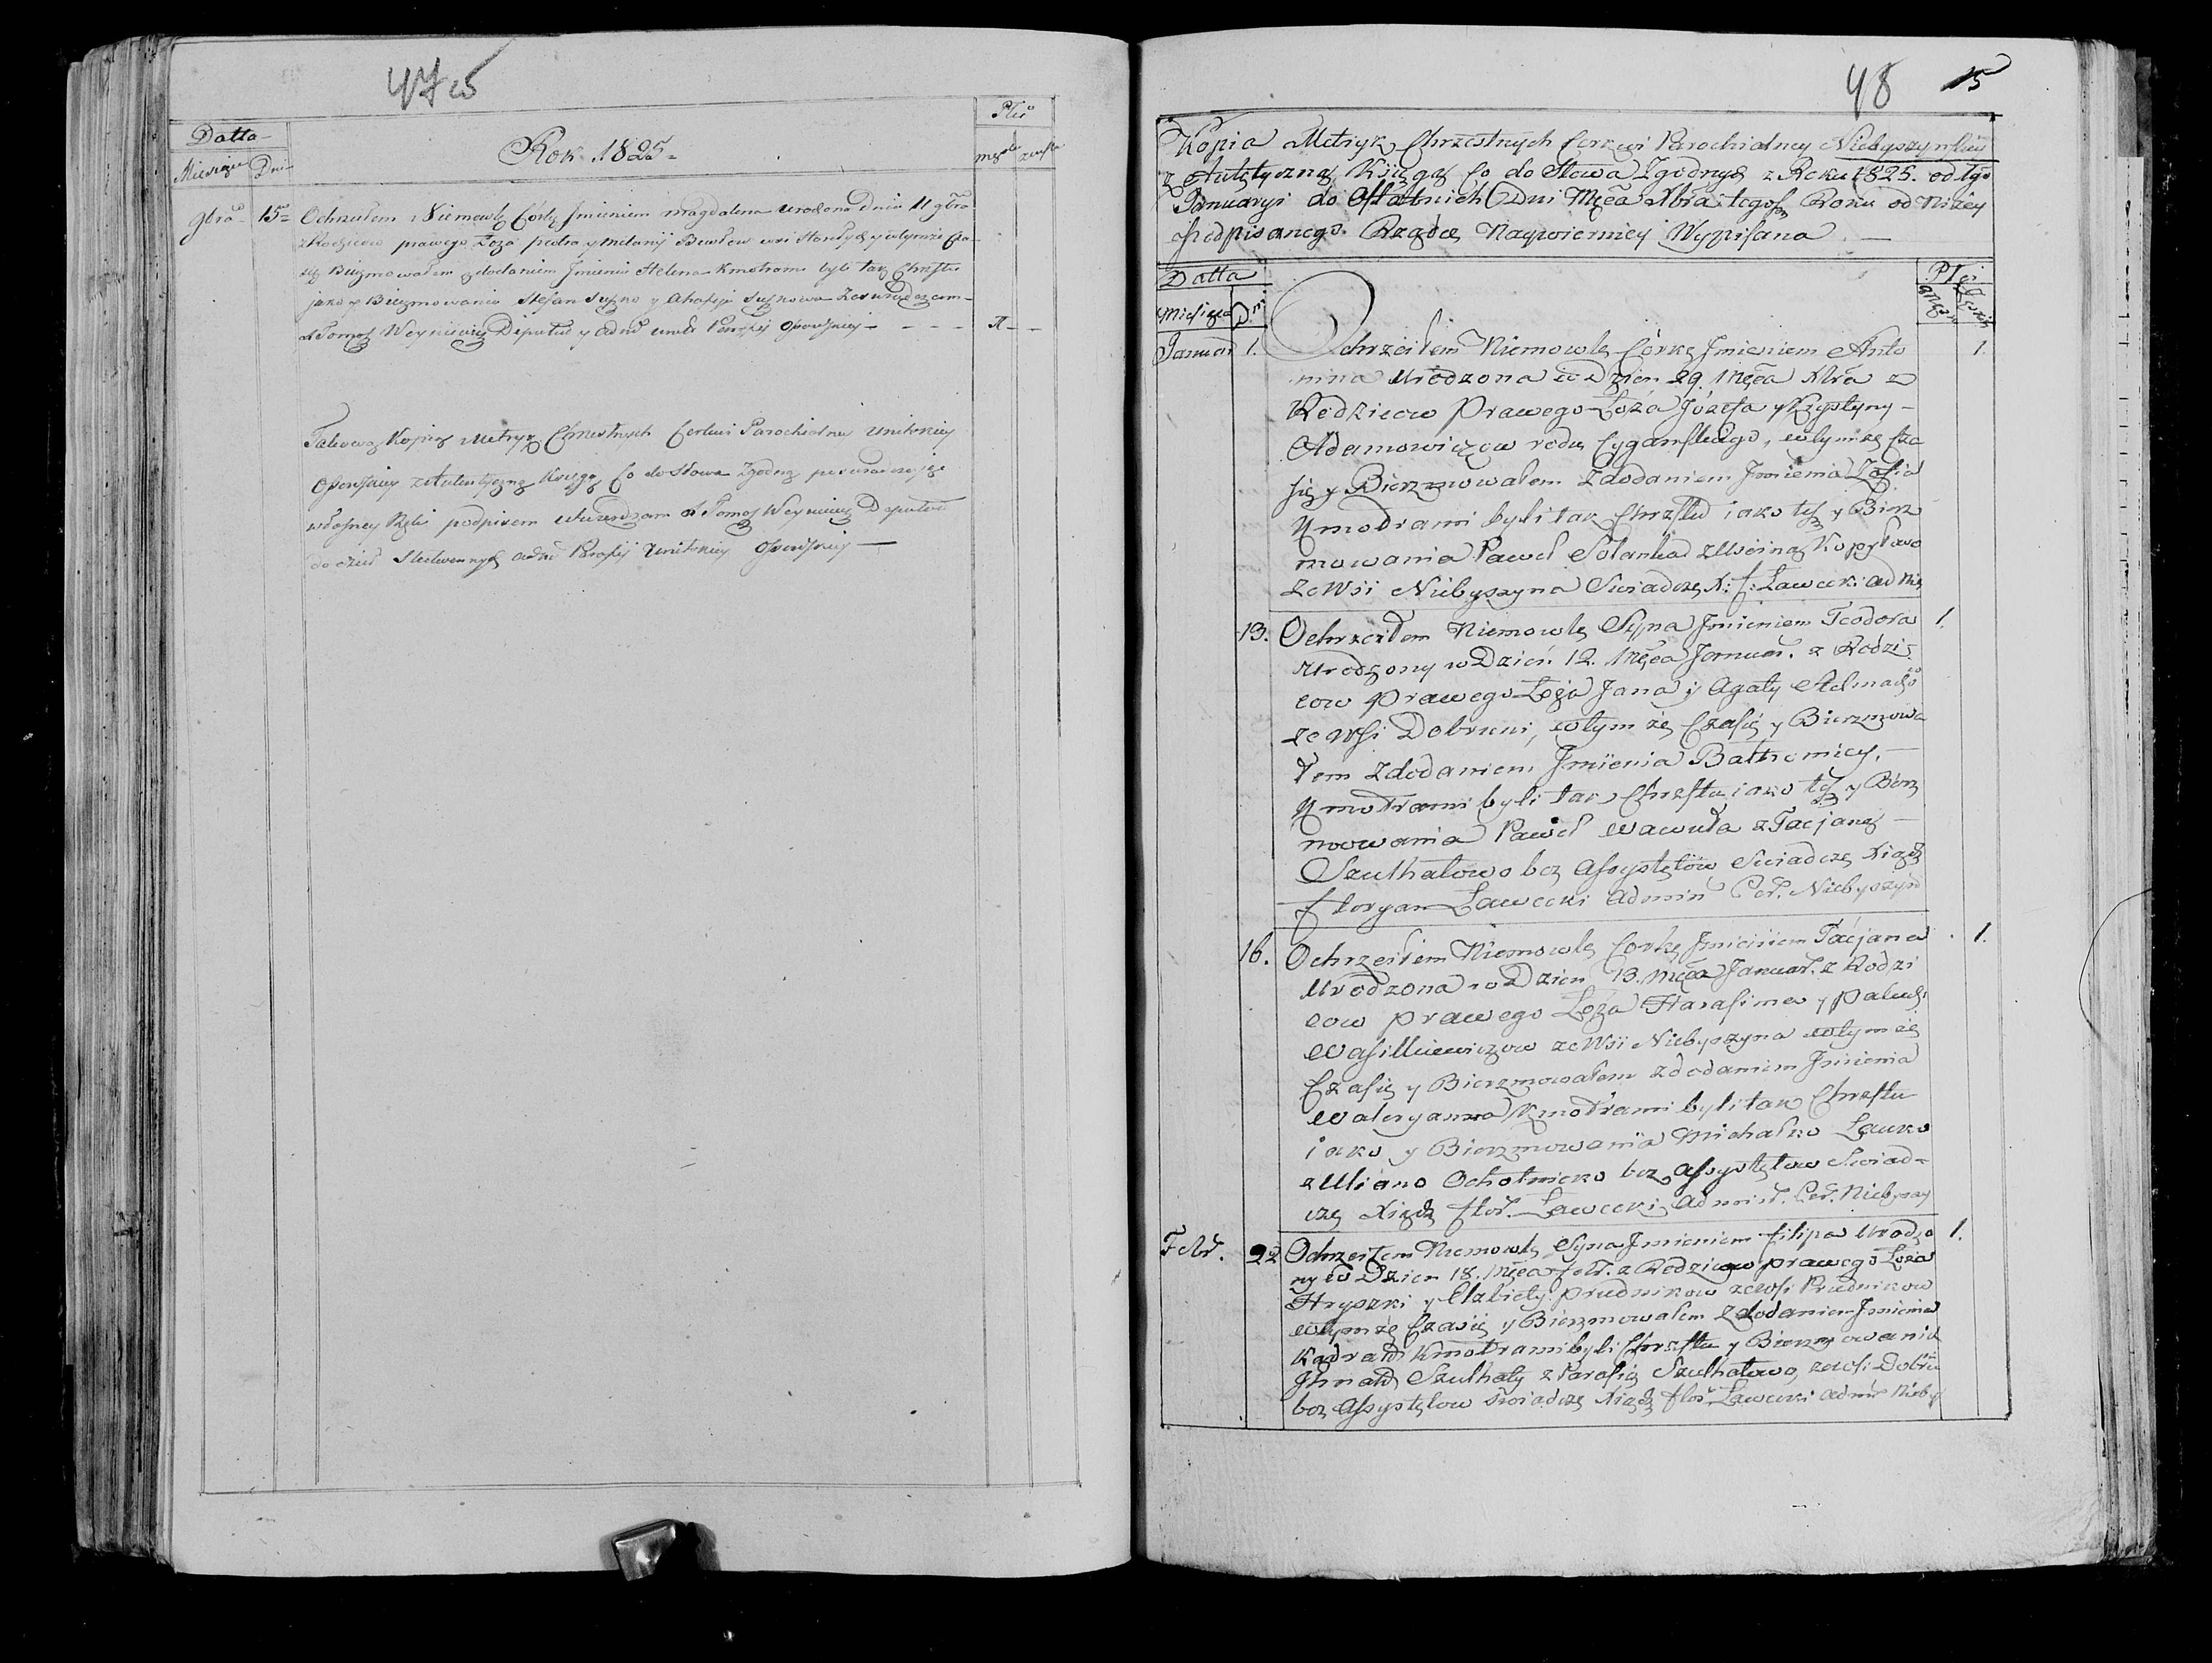 47 co
Datta
Miesiąc Dni
Rok 1825
Płci
męska żeńska
9bra 15 Ochrzciłem Niemowlę Córkę Jmieniem Magdalena urodzona Dnia 11 9bra
z Rodziców prawego Łoża Piotra y Melanij wsi y wtymże Cza-
się Bierzmowałem z dodaniem Jmienia Helena Kmotrami byli tak Chrztu
jako y Bierzmowania Stefan Suszko y Suszkowa Zaswiadczam
X Tomasz Woyniewicz Deputat y Adm Parafij
Takową Kopią Metryk Chrzestnych Cerkwi Parochialney Unitskiey
z Autentyczną Księgą Co do Słowa Zgodną poswiadczając
własney Ręki podpisem utwierdzam X Tomasz Woyniewicz Deputat
do dzieł Sledzwennych Adm Parafij Unitskiey
48 15
Kopia Metryk Chrzestnych Cerkwi Parochialney Niebyszynskiey
z Autętyczną Księgą Co do Słowa Zgodnych z Roku 1825. od 1go
Januaryi do Ostatnich Dni Męca Xbra tegoż Roku od Niżey
Podpisanego Rządcę Naywierniey Wypisana
Datta
Miesiąca Dni
Płci
Januar 1. Ochrzciłem Niemowlę Córkę Jmieniem Anto 1.
nina Urodzona w Dzien 29. Męca Xbra z
Rodzicow Prawego Łoża Józefa y Krystyny
Adamowiczow rodu Cyganskiego, wtymże Cza
się y Bierzmowałem Zdodaniem Jmienia Zofia
Kmotrami byli tak Chrztu iako też y Bierz
mowania Paweł z
Ze Wsi Niebyszyna Swiadczę X: F: Ławcecki
13. Ochrzciłem Niemowlę Syna Jmieniem Teodora 1.
Urodzony w Dzień 12. Męca Januar. z Rodzi
cow prawego Łoża Jana y Agaty
ze Wsi Dobruni, wtymże Czasię y Bierzmowa
łem Zdodaniem Jmienia Bałtromiey.
Kmotrami byli tak Chrztu iako też y Bierz
mowania Paweł Wawuła z Tacjaną
Szulhatowo bez Assystętów Swiadczę Xiądz
Floryan Ławcecki Admin Cer. Niebyszyn
16. Ochrzciłem Niemowlę Corkę Jmieniem Tacjana 1.
Urodzona w Dzien 13. Męca Januar. z Rodzi
cow prawego Łoża Harasima y
Wasilkiewiczow ze Wsi Niebyszyna wtymże
Czasię y Bierzmowałem zdodaniem Jmienia
Waleryanna Kmotrami byli tak Chrztu
iako y Bierzmowania Michałko Ławko
z Uliano Ochotnicko bez Assystętow Swiad-
czę Xiądz Flor. Ławcecki Admist. Cer. Niebyszy
Febr. 22 Ochrzciłem Niemowlę Syna Jmieniem Filipa Urodzo 1.
ny w Dzien 18. Męca Febr. z Rodzicow prawego Łoża
Hryszki y Elżbiety Prudnikow ze Wsi Prudnikow
wtymże Czasię y Bierzmowałem Zdodaniem Jmienia
Kmotrami byli Chrztu y Bierzmowania
Szulhaty z Parasią Szulhatowo, ze Wsi Dobru
bez Assystętow swiadczę Xiądz Flor. Ławcecki Adm Nieby